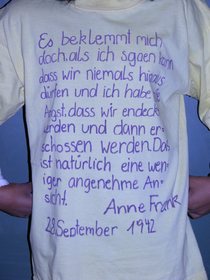 Es beklemmt mich
doch, als ich sgaen kann
dass wir niemals hinaus
dürfen und ich habe
Angst, dass wir endeckt
werden und dann er-
schossen werden. Das
ist natürlich eine wen-
iger angenehme An-
sicht.
Anne Frank
28. September 1942